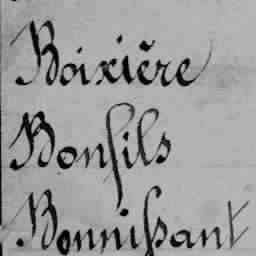 Boixière
Bonfils
Bonnißant